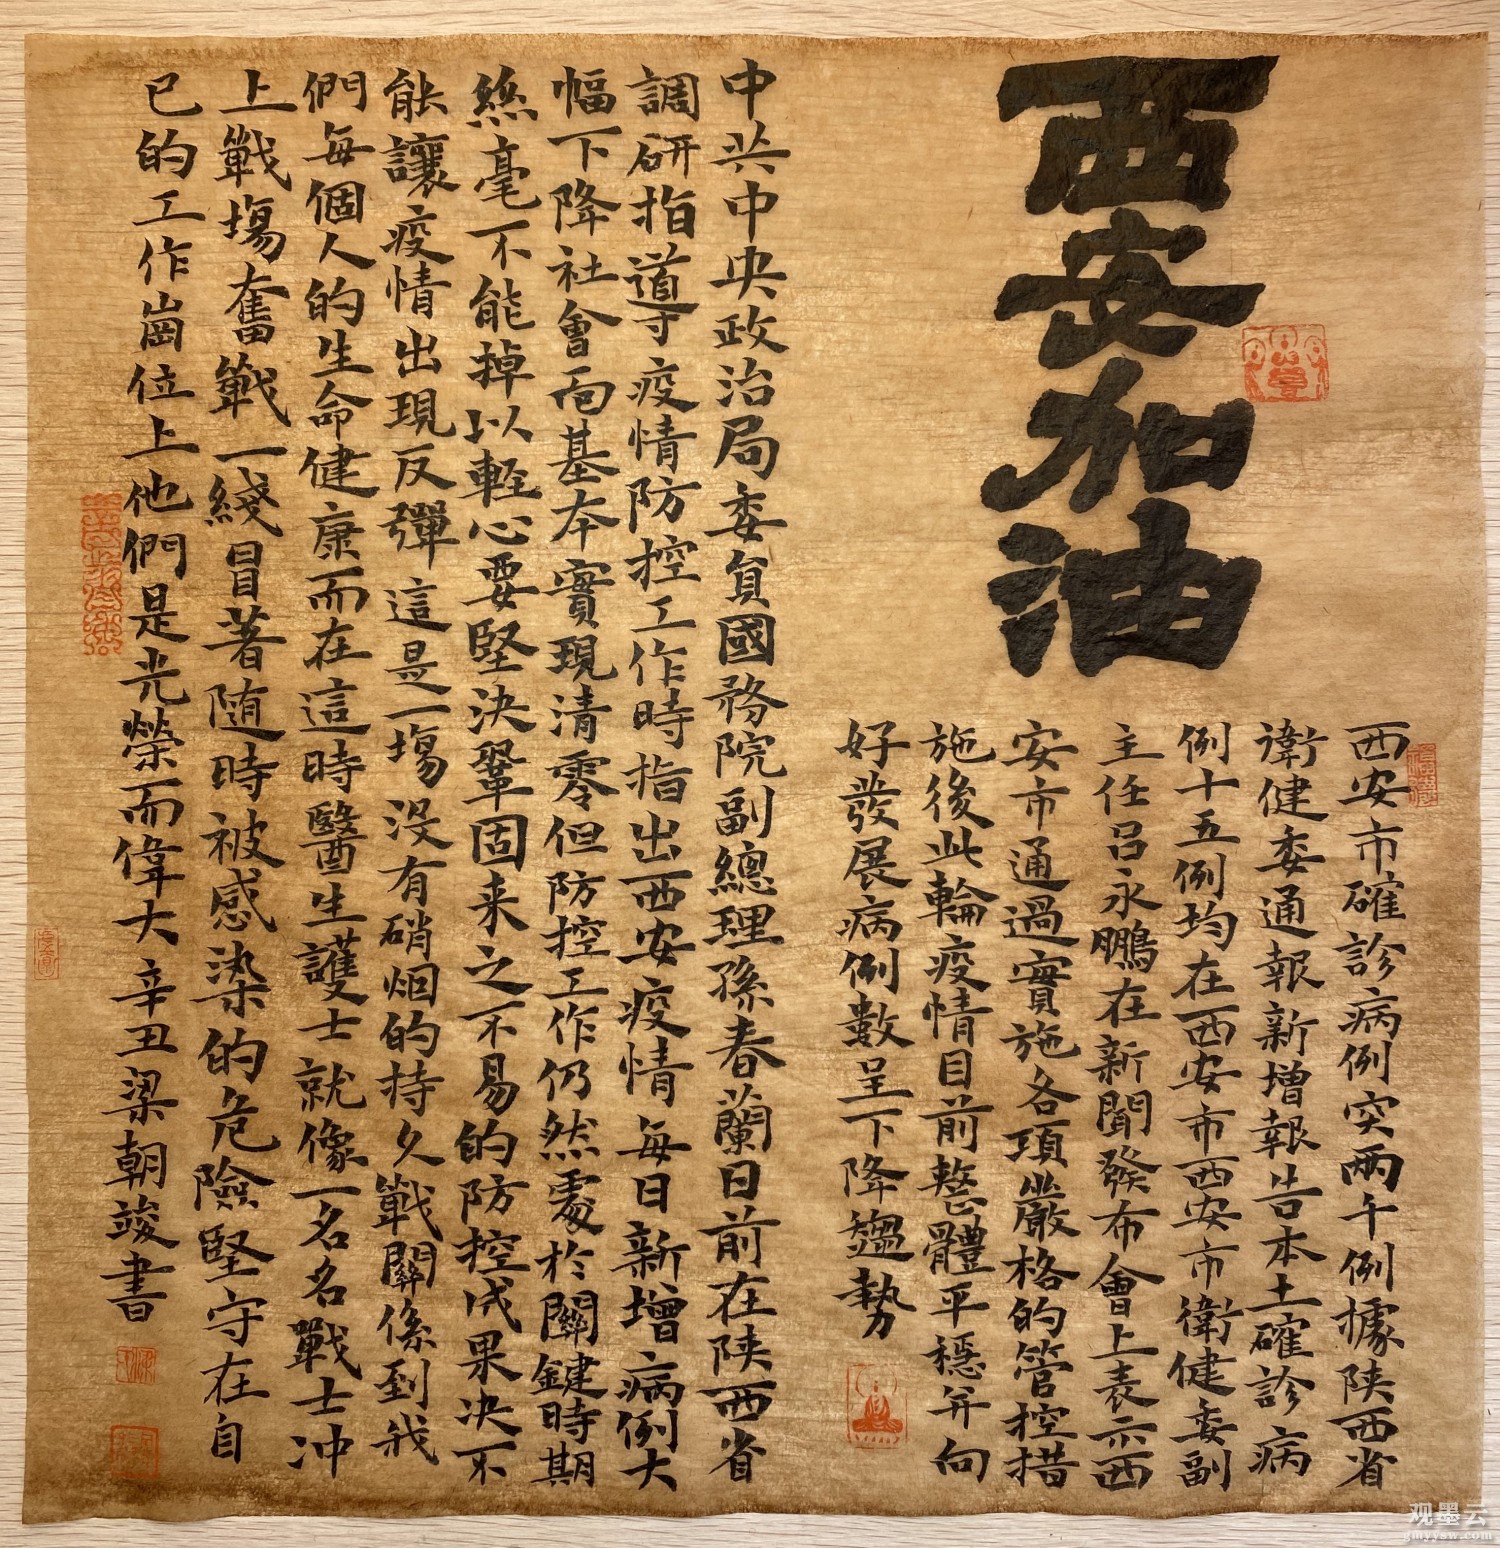 西安加油
西安市確診病例突兩千例據陝西省
衛健委通報新增報告本土確診病
例十五例均在西安市西安市衛健委副
主任吕永鵬在新聞發布會上表示西
安市通過實施各項嚴格的管控措
施後此輪疫情目前整體平穩并向
好發展病例數呈下降趨勢
中共中央政治局委員國務院副總理孫春蘭日前在陝西省
調研指導疫情防控工作時指出西安疫情每日新增病例大
幅下降社會面基本實現清零但防控工作仍然處於關鍵時期
絲毫不能掉以輕心要堅決鞏固来之不易的防控成果決不
能讓疫情出現反彈這是一場没有硝烟的持久戰關係到我
們每個人的生命健康而在這時醫生護士就像一名名戰士冲
上戰場奮戰一綫冒著随時被感染的危險堅守在自
已的工作崗位上他們是光榮而偉大辛丑梁朝竣書
观墨云
gmyysw.com